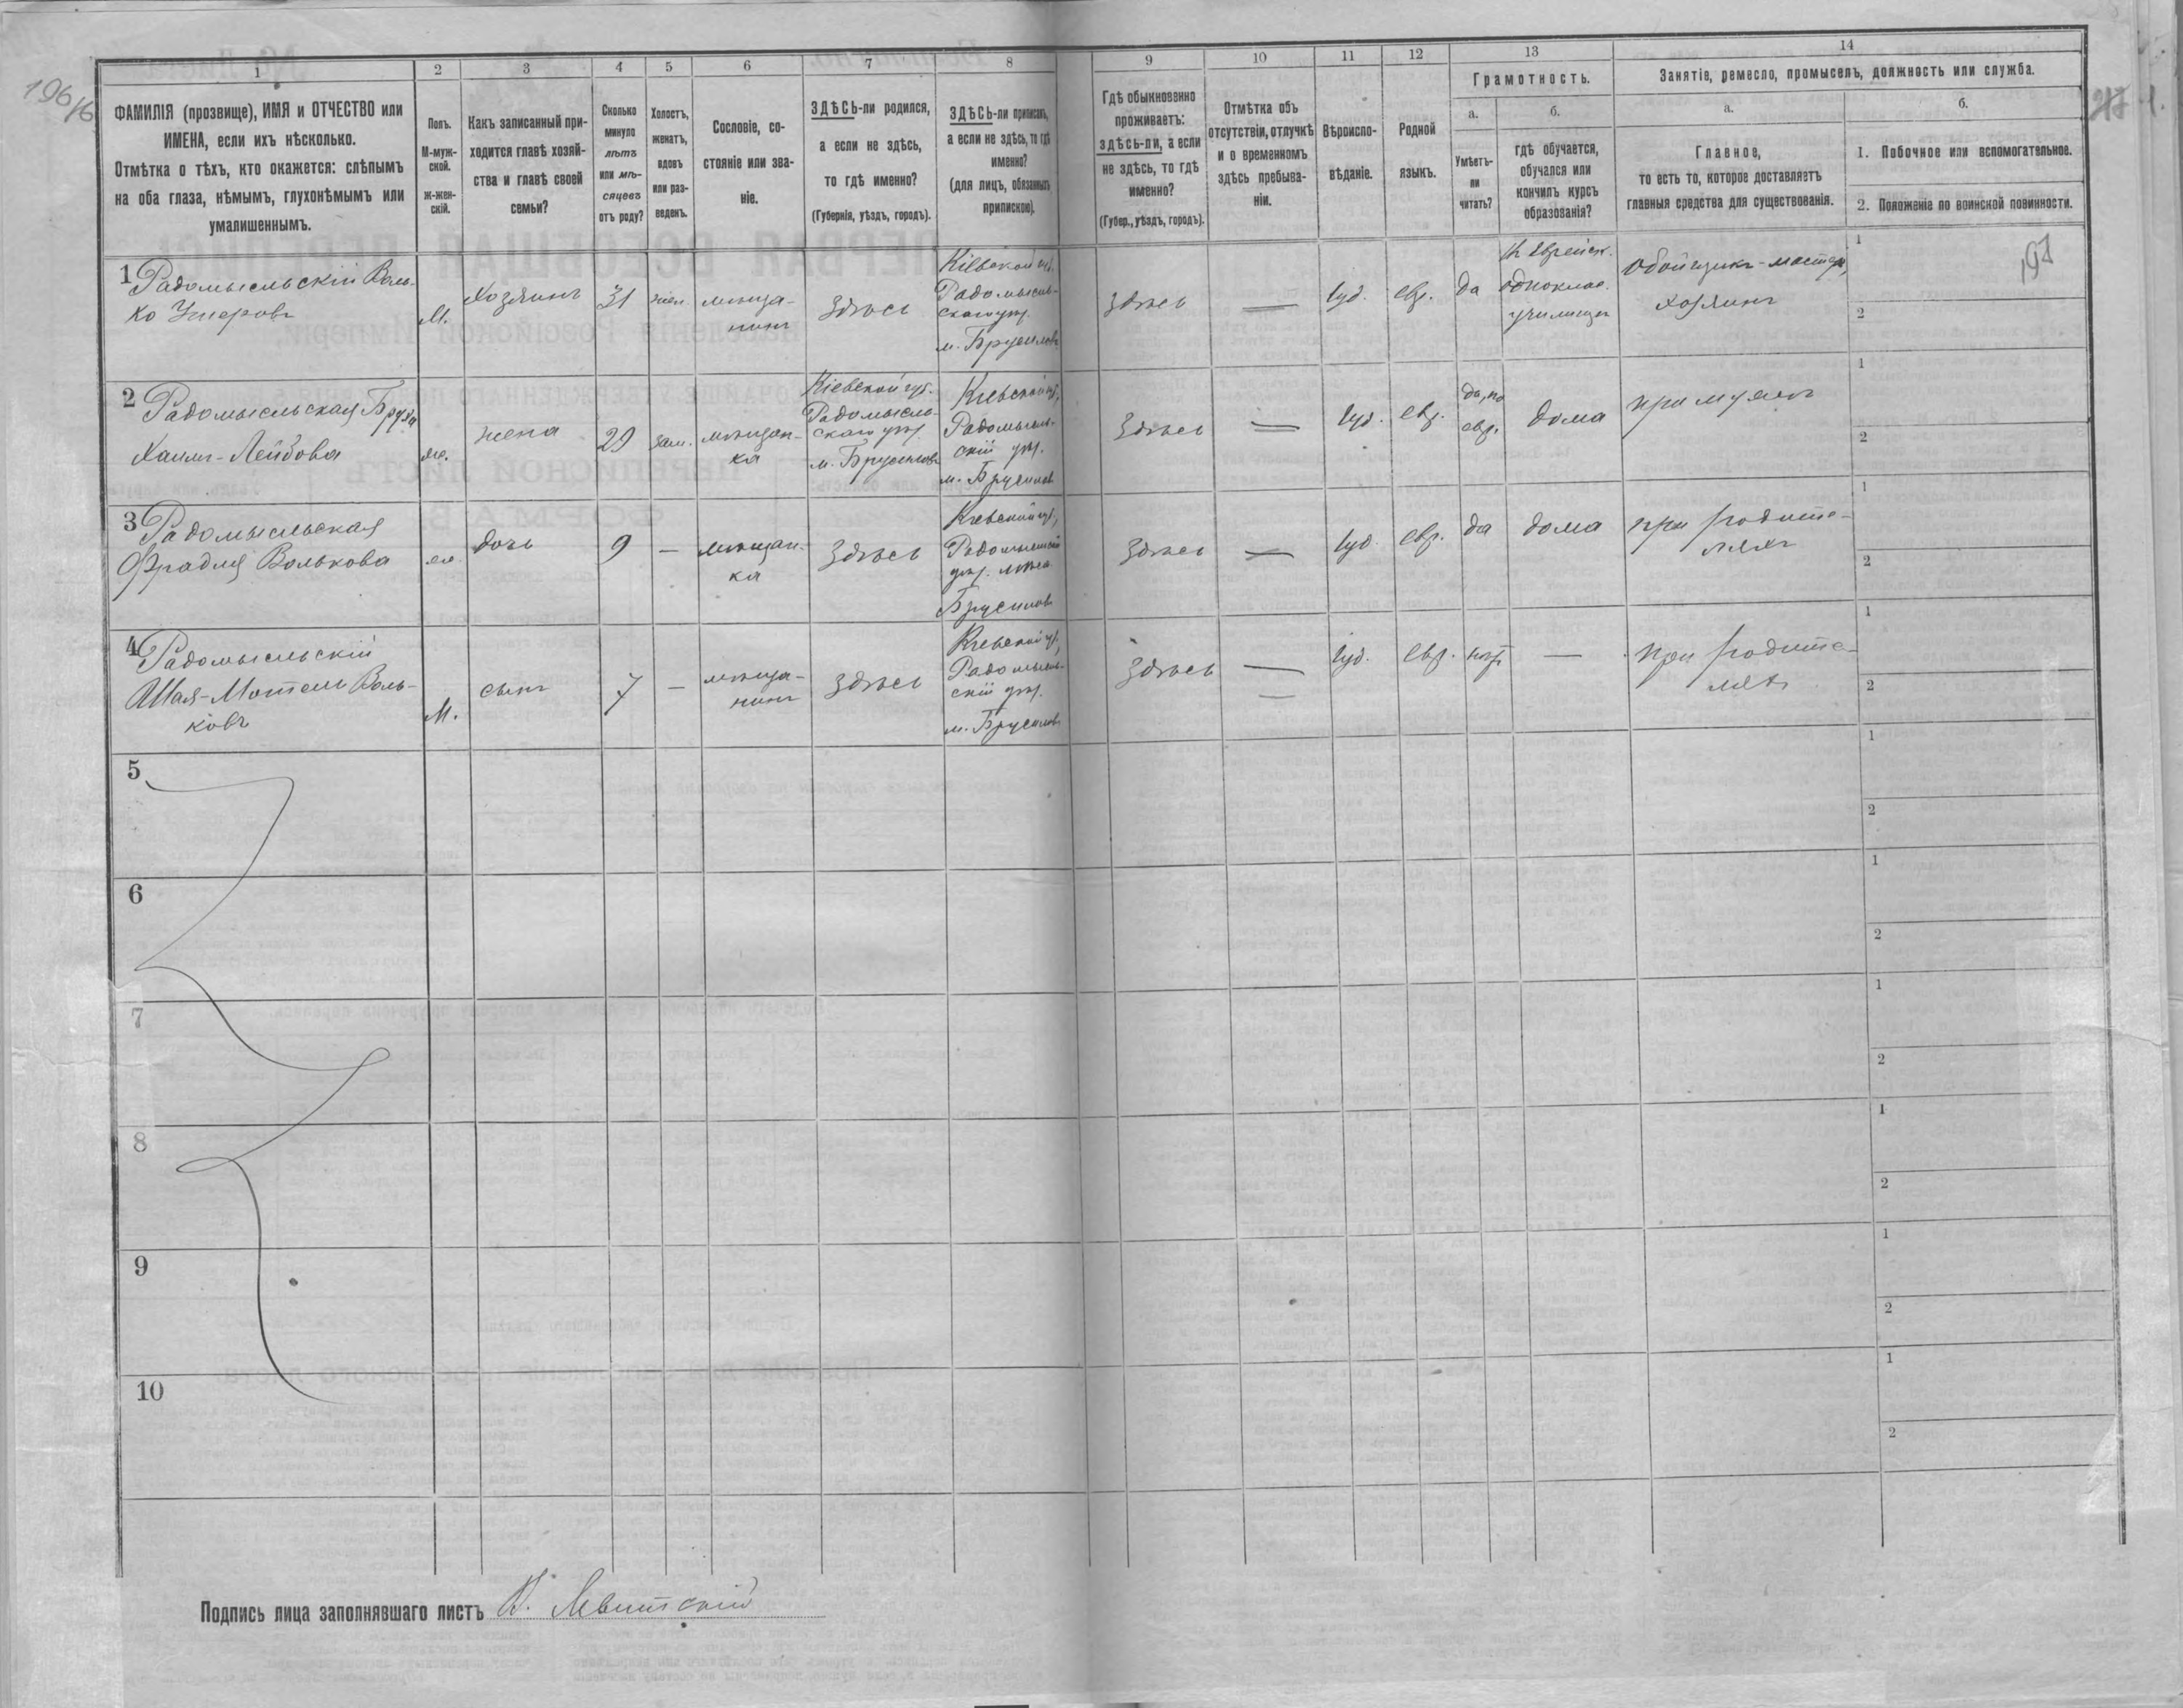 196/6
197
1
2
3
4
5
6
7
8
9
10
11
12
13
14
ФАМИЛІЯ (прозвище), ИМЯ и ОТЧЕСТВО или
ИМЕНА, если ихъ нѣсколько.
Отмѣтка о тѣхъ, кто окажется: слѣпымъ
на оба глаза, нѣмымъ, глухонѣмымъ или
умалишеннымъ.
Полъ.
М-муж-
ской.
ж-жен-
скій.
Какъ записанный при-
ходится главѣ хозяй-
ства и главѣ своей
семьи?
Сколько
минуло
лѣтъ
или мѣ-
сяцевъ
отъ роду?
Холостъ,
женатъ,
вдовъ
или раз-
веденъ.
Сословіе, со-
стояніе или зва-
ніе.
ЗДѢСЬ-ли родился,
а если не здѣсь,
то гдѣ именно?
(Губернія, уѣздъ, городъ).
ЗДѢСЬ-ли приписанъ,
а если не здѣсь, то гдѣ
именно?
(для лицъ, обязанныхъ
припискою).
Гдѣ обыкновенно
проживаетъ:
здѣсь-ли, а если
не здѣсь, то гдѣ
именно?
(Губер., уѣздъ, городъ).
Отмѣтка объ
отсутствіи, отлучкѣ
и о временномъ
здѣсь пребыва-
ніи.
Вѣроиспо-
вѣданіе.
Родной
языкъ.
Грамотность.
а.
Умѣетъ-
ли
читать?
б.
гдѣ обучается,
обучался или
кончилъ курсъ
образованія?
Занятіе, ремесло, промыселъ, должность или служба.
а.
Главное,
то есть то, которое доставляетъ
главныя средства для существованія.
б.
1. Побочное или вспомогательное.
2. Положеніе по воинской повинности.
1
Радомысльскій Воль-
ко Умеровъ
М.
Хозяинъ
31
жен.
мѣща-
нинъ
Здѣсь
Кіевской губ.
Радомысль-
скаго уѣз.
м. Брусиловъ
Здѣсь
—
Іуд.
евр.
да
Еврейск.
однокласс.
училищѣ
Обойщикъ-мастеръ,
хозяинъ
1
2
2
Радомысльская Бруха
Хаимъ-Лейбова
ж.
жена
29
зам.
мѣщан-
ка
Кіевской губ.
Радомысль-
скаго уѣз.
м. Брусиловъ
Кіевской губ.
Радомысль-
скій уѣз.
м. Брусиловъ
Здѣсь
—
Іуд.
евр.
да, по
евр.
дома
при мужѣ
1
2
3
Радомысльская
Фрадля Волькова
ж.
дочь
9
—
мѣщан-
ка
Здѣсь
Кіевской губ.,
уѣз.
Брусиловъ
Здѣсь
—
Іуд.
евр.
да
дома
при родите-
ляхъ
1
2
4
Радомысльскій
Шая-Мотель Воль-
ковъ
М.
сынъ
7
—
мѣща-
нинъ
Здѣсь
Кіевской губ.,
Радомысль-
скій уѣз.
м. Брусиловъ
Здѣсь
—
Іуд.
евр.
нѣт
—
при родите-
ляхъ
1
2
5
1
2
6
1
2
7
1
2
8
1
2
9
1
2
10
1
2
Подпись лица заполнявшаго листъ Левитскій